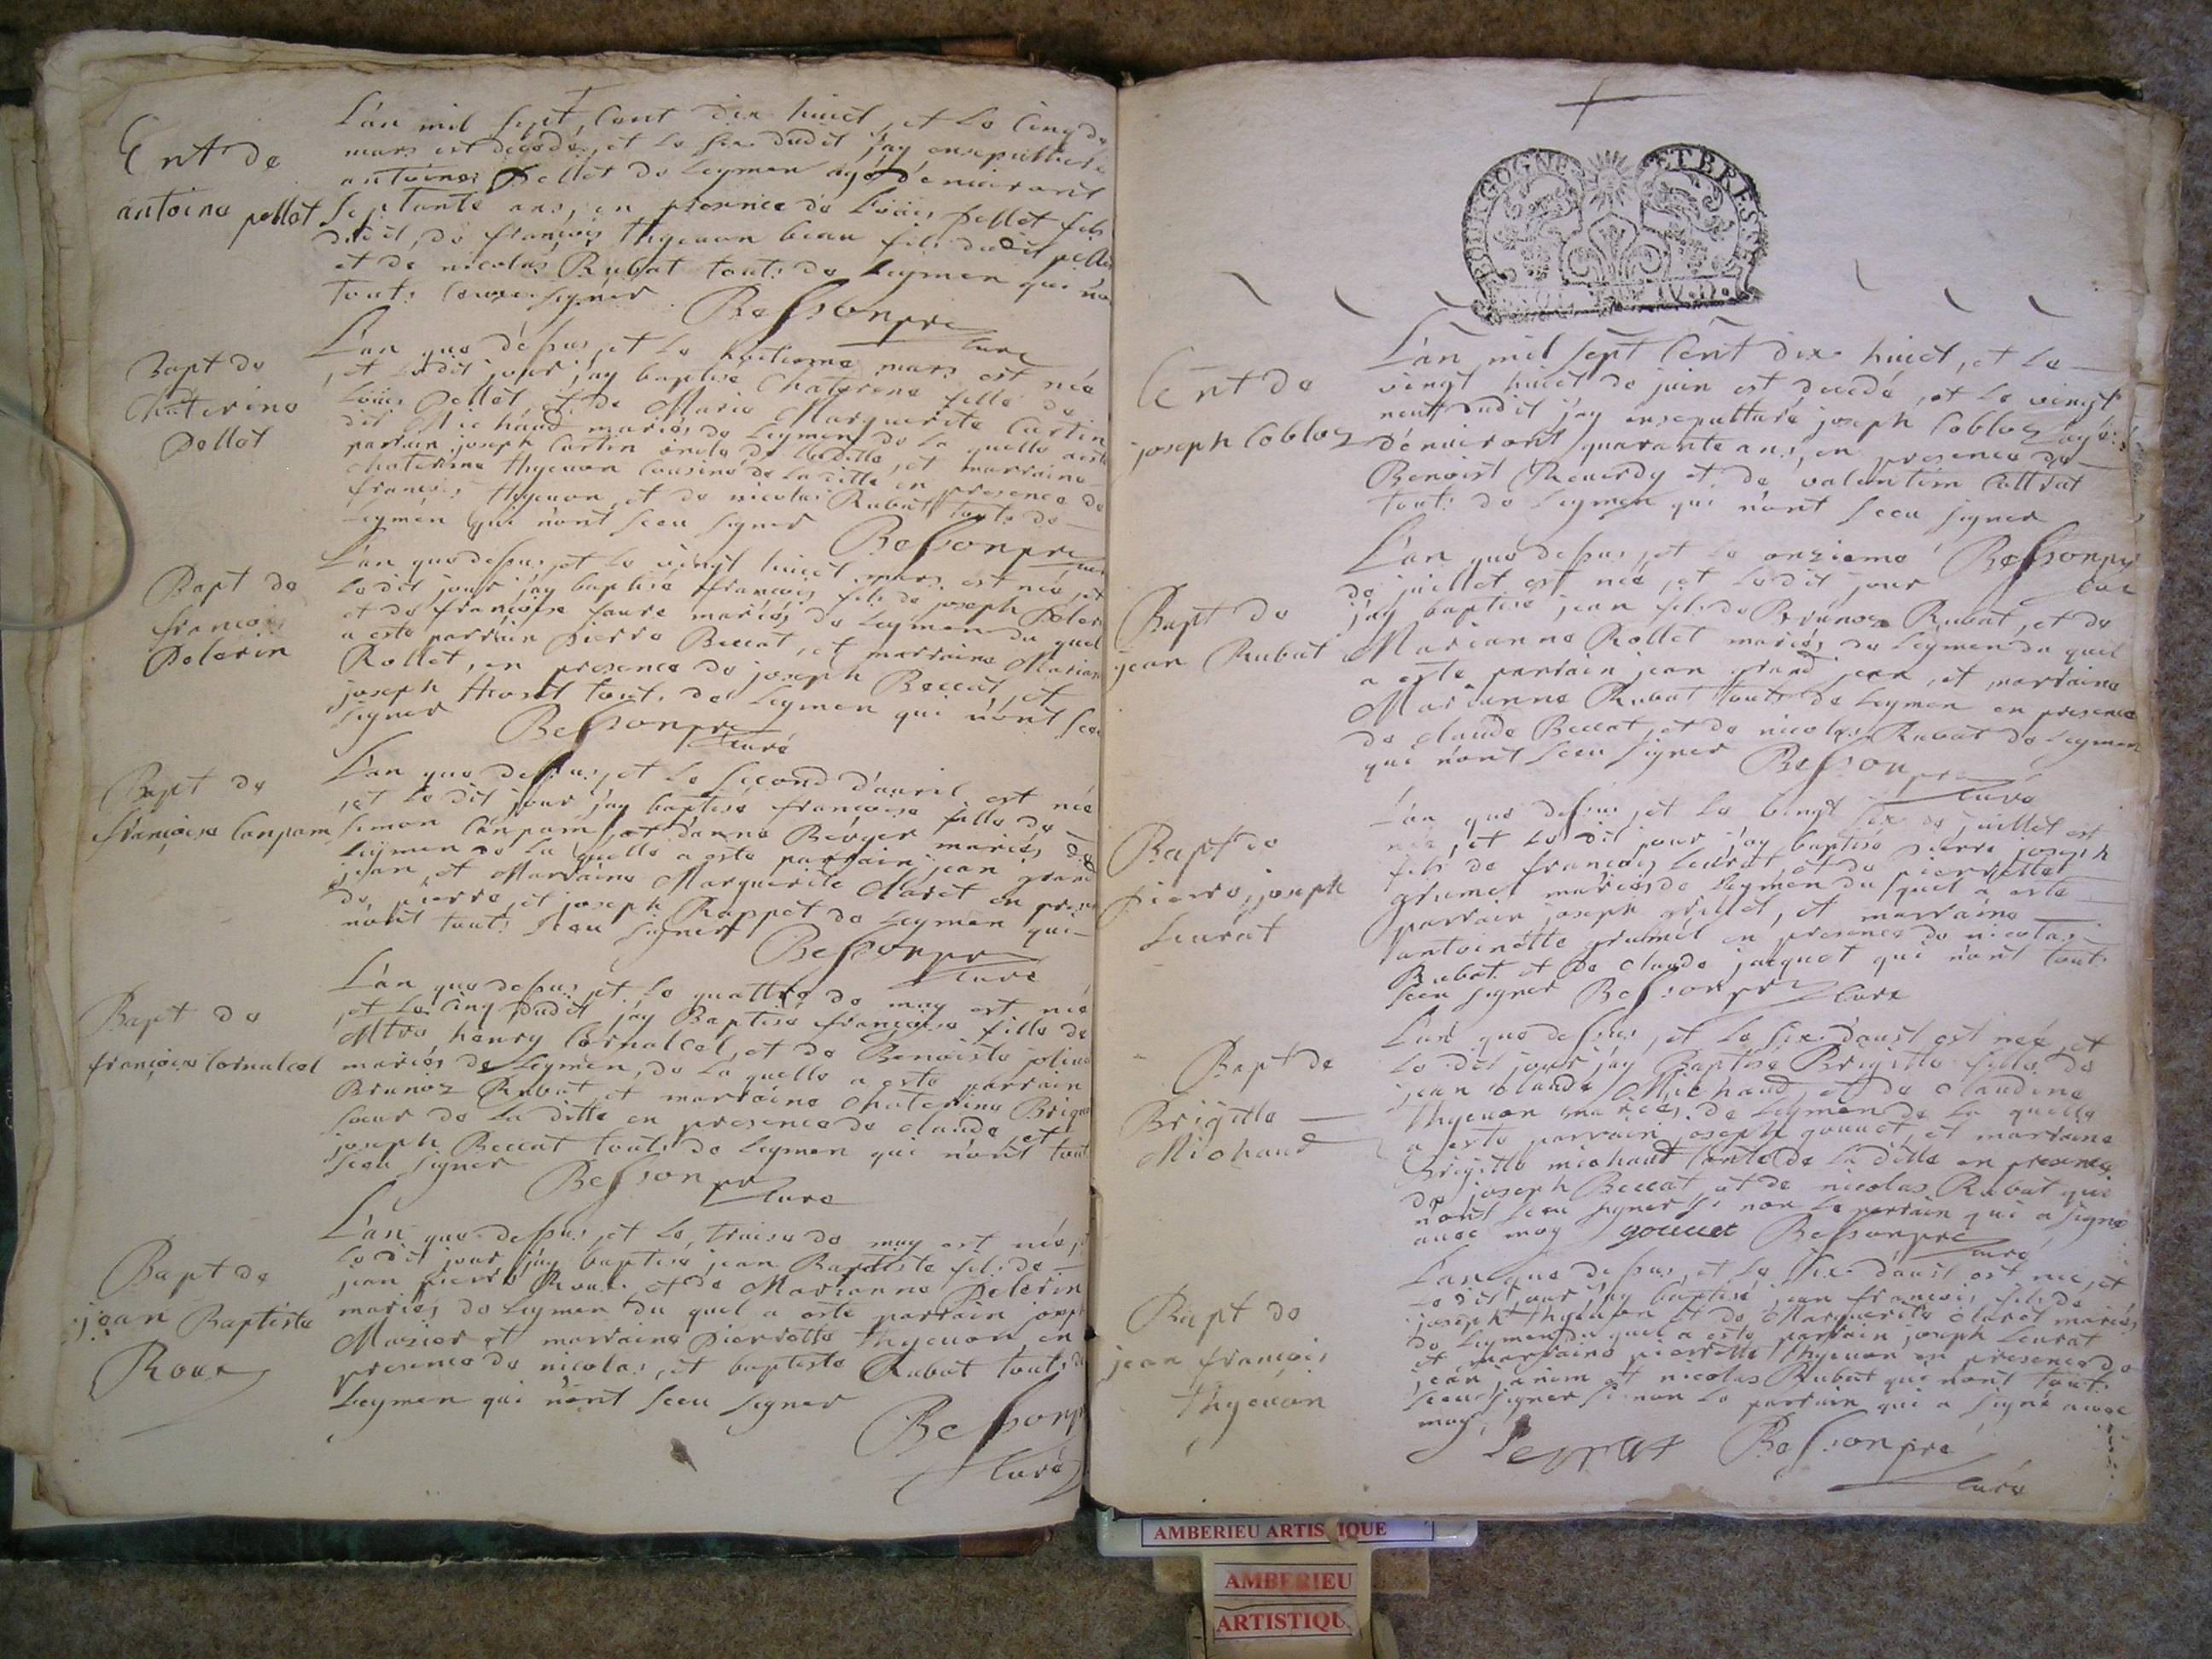 Ent de
antoine pellot
L'an mil sept Cent dix huict, et le Cinq de
mars est decedé, et le six dudit j'ay ensepulturé
antoine Pellot de Leymen agé d'enuiront
septante ans, en presence de Loüis Pellot fils
dudit, de françois thyeuon beau fils dudit pellot
et de nicolas Rubat touts de Leymen qui n'on
touts sceu signer Bessonpre
Curé
Bapt de
Chaterine
Pellot
L'an que dessus, et le huitieme mars est née
, et ledit jour j'ay baptisé Chaterine fille de
Loüis Pellot, et de Marie Marguerite Cartin
dit Michaud mariés de Leymen de la quelle a esté
parrain joseph Cartin oncle de laditte, et marraine
chaterine thyeuon Cousine de laditte en presence de
françois thyeuon, et de nicolas Rubat touts de
Leymen qui n'ont sceu signer Bessonpre
Curé
Bapt de
françois
Pelerin
L'an que dessus, et le vingt huict mars est né, et
ledit jour j'ay baptisé françois fils de joseph Peler
et de françoise faure mariés de Leymen du quel
a esté parrain Pierre Beccat, et marraine Marian
Rollet, en presence de joseph Beccat, et
joseph touts de Leymen qui n'ont sceu
signer Bessonpre
Curé
Bapt de
françoise Canpam
L'an que dessus, et le second d'auril est née
, et ledit jour j'ay baptisé françoise fille de
simon Canpam, et d'anne Berger mariés de
Leymen de la quelle a esté parrain jean grand
jean, et Marraine Marguerite Claret en prese
de pierre, et joseph Rappet de Leymen qui
n'ont touts sceu signer Bessonpre
Curé
Bapt de
françoise Cornalcel
L'an que dessus, et le quattre de may est née
, et le cinq dudit j'ay Baptisé françoise fille de
Mtre henry Cornalcel, et de Benoiste
mariés de Leymen, de la quelle a esté parrain
Brunoz Rubat, et marraine Chaterine
soeur de la ditte en presence de claude, et
joseph Beccat touts de Leymen qui n'ont tout
sceu signer Bessonpre
Curé
Bapt de
jean Baptiste
Roux
L'an que dessus, et le treise de may est né,
ledit jour j'ay baptisé jean Baptiste fils de
jean pierre Roux, et de Marianne Pelerin
mariés de Leymen du quel a esté parrain josep
Mazier et marraine Pierrette thyeuon en
presence de nicolas, et baptiste Rubat touts de
Leymen qui n'ont sceu signer
Bessonpre
Curé
BOURGOGNE ET BRESSE
Ent de
joseph Cobloz
L'an mil sept Cent dix huict, et le
vingt huict de juin est decedé, et le vingt
neuf dudit j'ay ensepulturé joseph Cobloz agé
d'enuiront quarante ans, en presence de
Benoist Reuerdy et de valentin Cottrat
touts de Leymen qui n'ont sceu signer
Bessonpre
Curé
Bapt de
jean Rubat
L'an que dessus, et le onzieme
de juillet est né, et ledit jour
j'ay baptisé jean fils de Brunoz Rubat, et de
Marianne Rollet mariés de Leymen du quel
a esté parrain jean grand jean, et marraine
Marianne Rubat touts de Leymen en presence
de claude Beccat, et de nicolas Rubat de Leymen
qui n'ont sceu signer Bessonpre
Curé
Bapt de
pierre, joseph
Leurat
L'an que dessus, et le vingt six de juillet est
né, et ledit jour j'ay baptisé pierre joseph
fils de françois Leurat, et de pierrette
grumel mariés de Leymen du quel a esté
parrain joseph grillet, et marraine
antoinette grumel en presence de nicolas
Rubat et de claude jacquet qui n'ont touts
sceu signer Bessonpre Curé
Bapt de
Brigitte
Michaud
L'an que dessus, et le six d'aoust est née, et
ledit jour j'ay Baptisé Brigitte fille de
jean claude Michaud, et de claudine
thyeuon mariés de Leymen de la quelle
a esté parrain joseph gouuet, et marraine
Brigitte michaud tante de la ditte en presence
de joseph Beccat et de nicolas Rubat qui
n'ont sceu signer si non le parrain qui a signé
auec moy gouuet Bessonpre
Curé
Bapt de
jean françois
thyeuon
L'an que dessus, et le six d'aoust est né, et
ledit jour j'ay baptisé jean françois fils de
joseph thyeuon et de Marguerite Claret mariés
de Leymen du quel a esté parrain joseph Leurat
et marraine pierrette thyeuon en presence de
jean janin et nicolas Rubat qui n'ont touts
sceu signer si non le parrain qui a signé auec
moy, Leurat Bessonpre
Curé
AMBERIEU ARTISTIQUE
AMBERIEU
ARTISTIQU